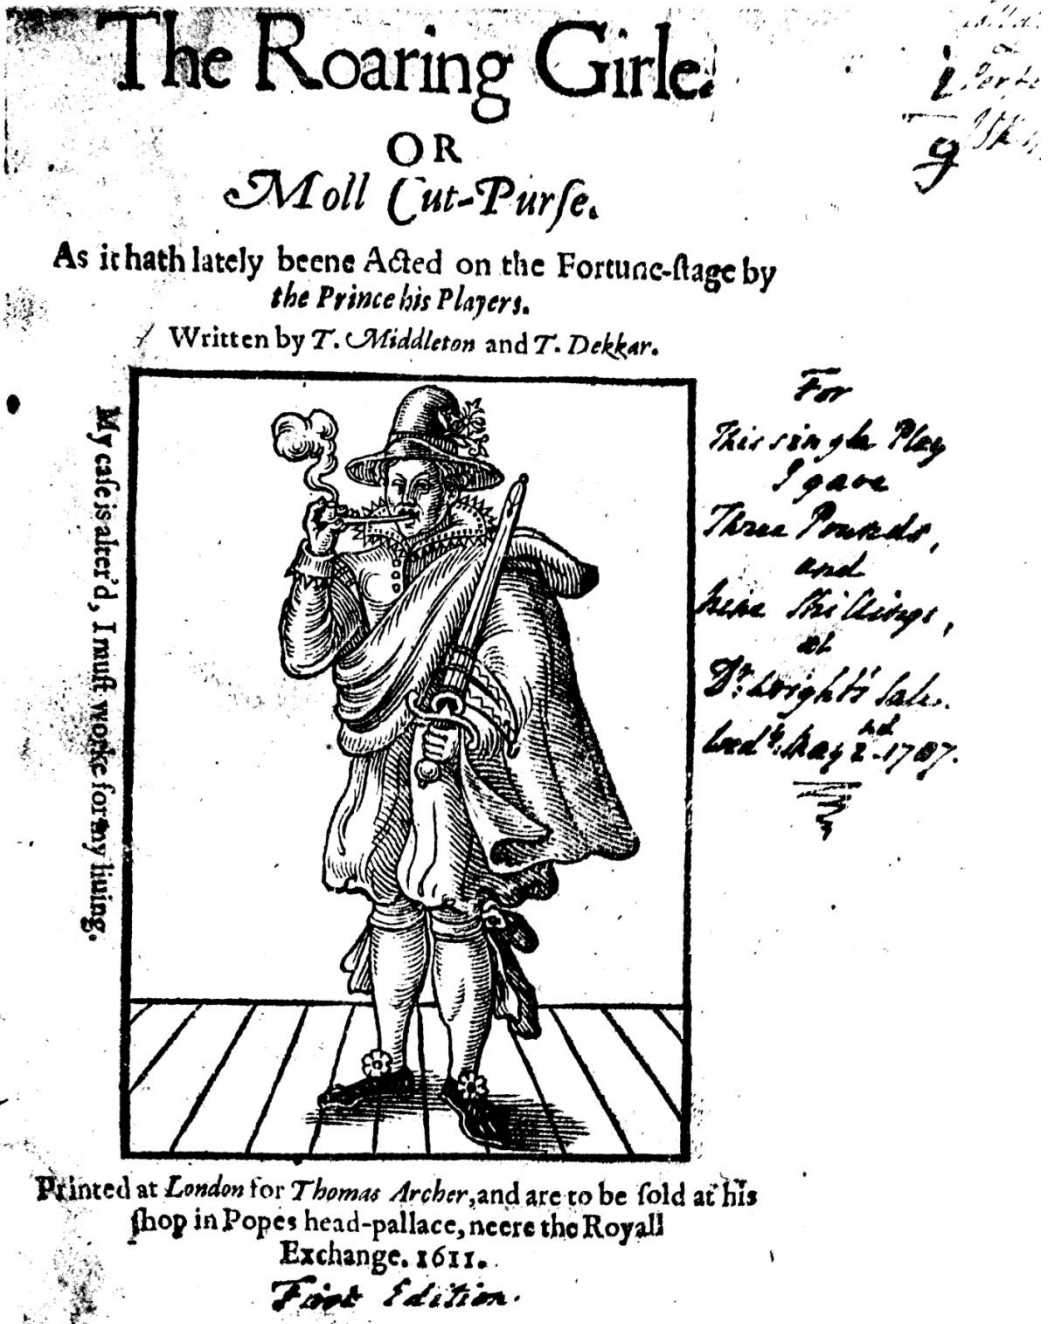 The Roaring Girle.
OR
Moll Cut-Purſe.
As it hath lately beene Acted on the Fortune-ſtage by
the Prince his Players.
Written by T. Middleton and T. Dekkar.
My caſe is alter'd, I muſt worke for my liuing.
For
This single Play
I gave
Three Pounds,
and
nine Shillings,
at
Dr. Wright's Sale.
Wedy. May 2nd. 1787.
Printed at London for Thomas Archer, and are to be ſold at his
ſhop in Popes head-pallace, neere the Royall
Exchange. 1611.
First Edition.